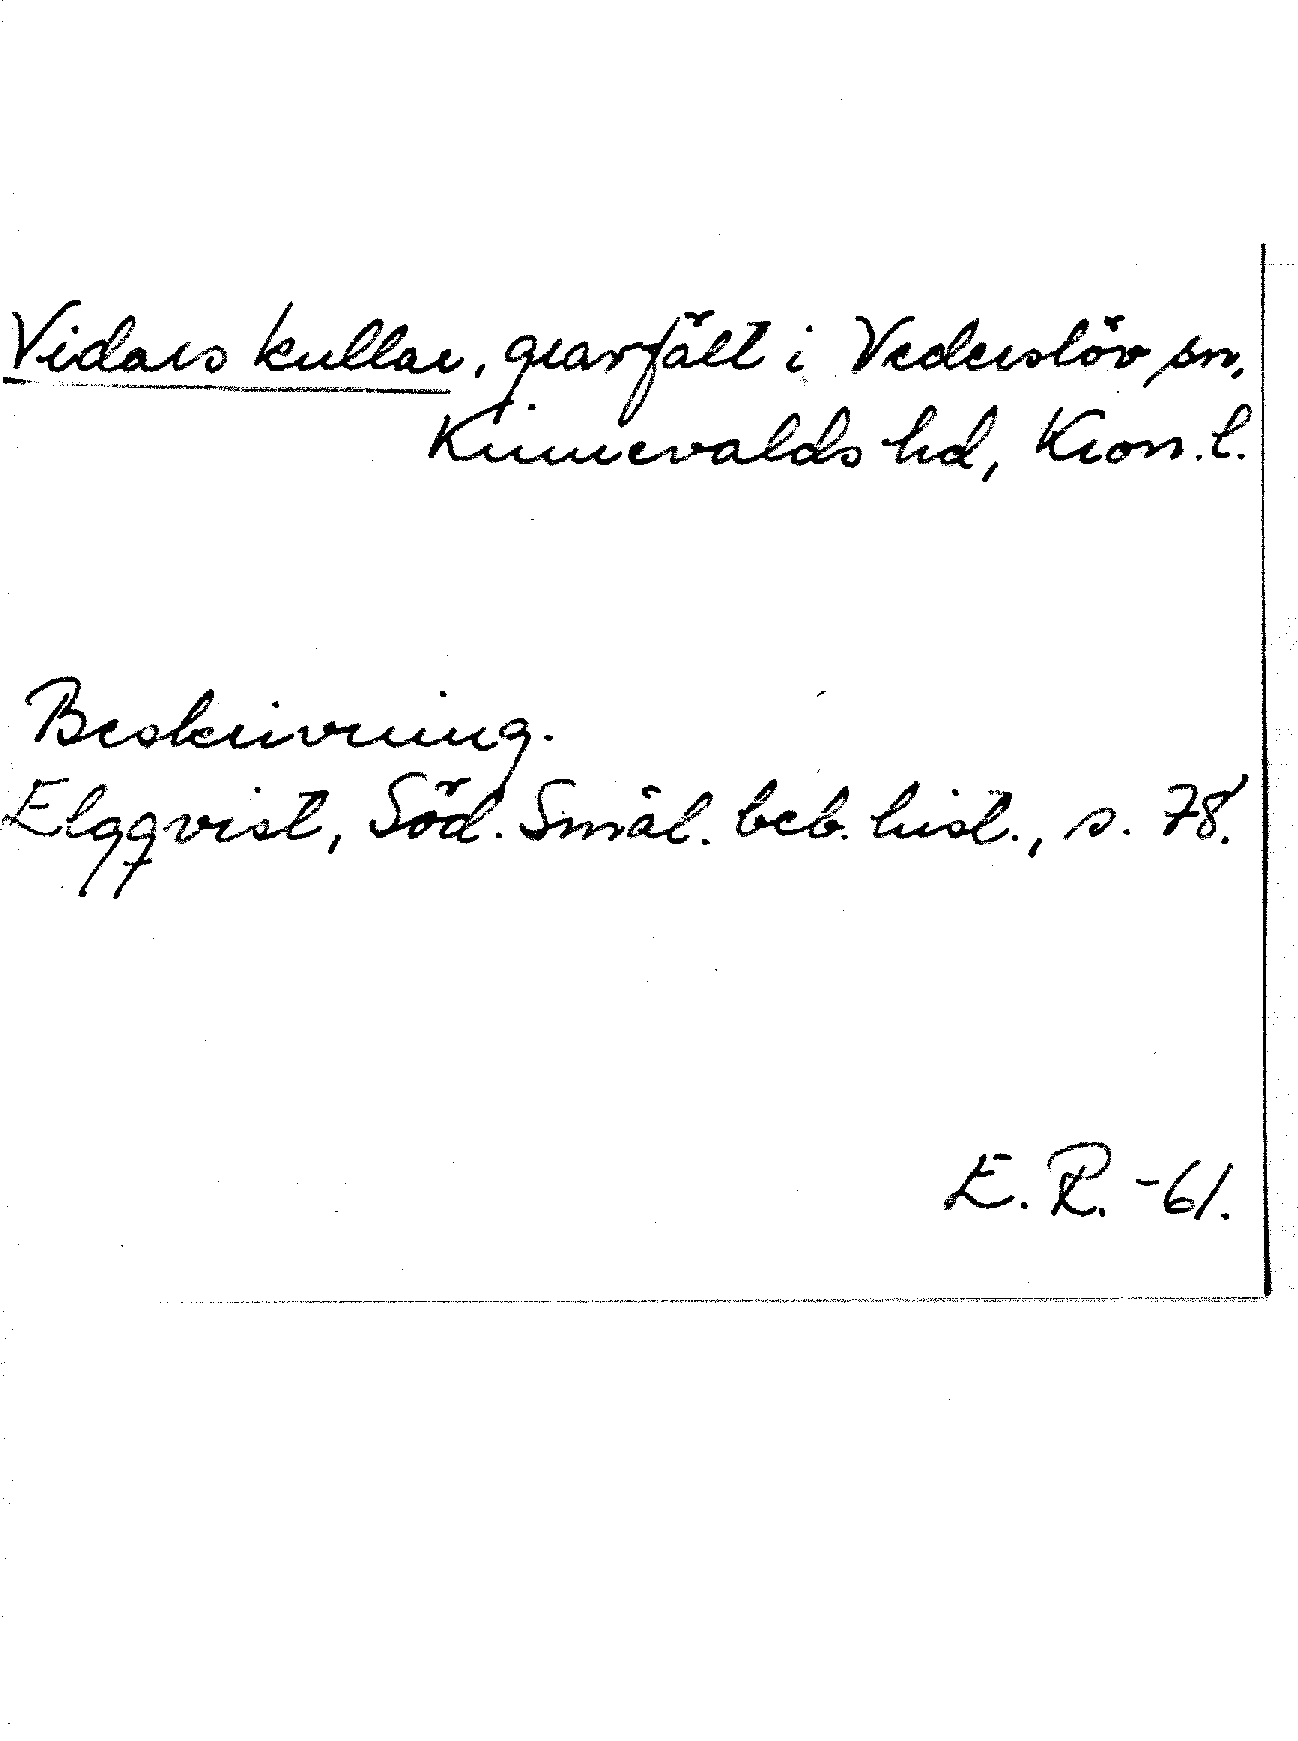 Vidars kullar, gravfält i Vederslöv sn,
Kinnevalds hd, Kron. l.
Beskrivning.
Elgqvist, Söd. Smål. beb. hist., s. 78.
E. R. -61.